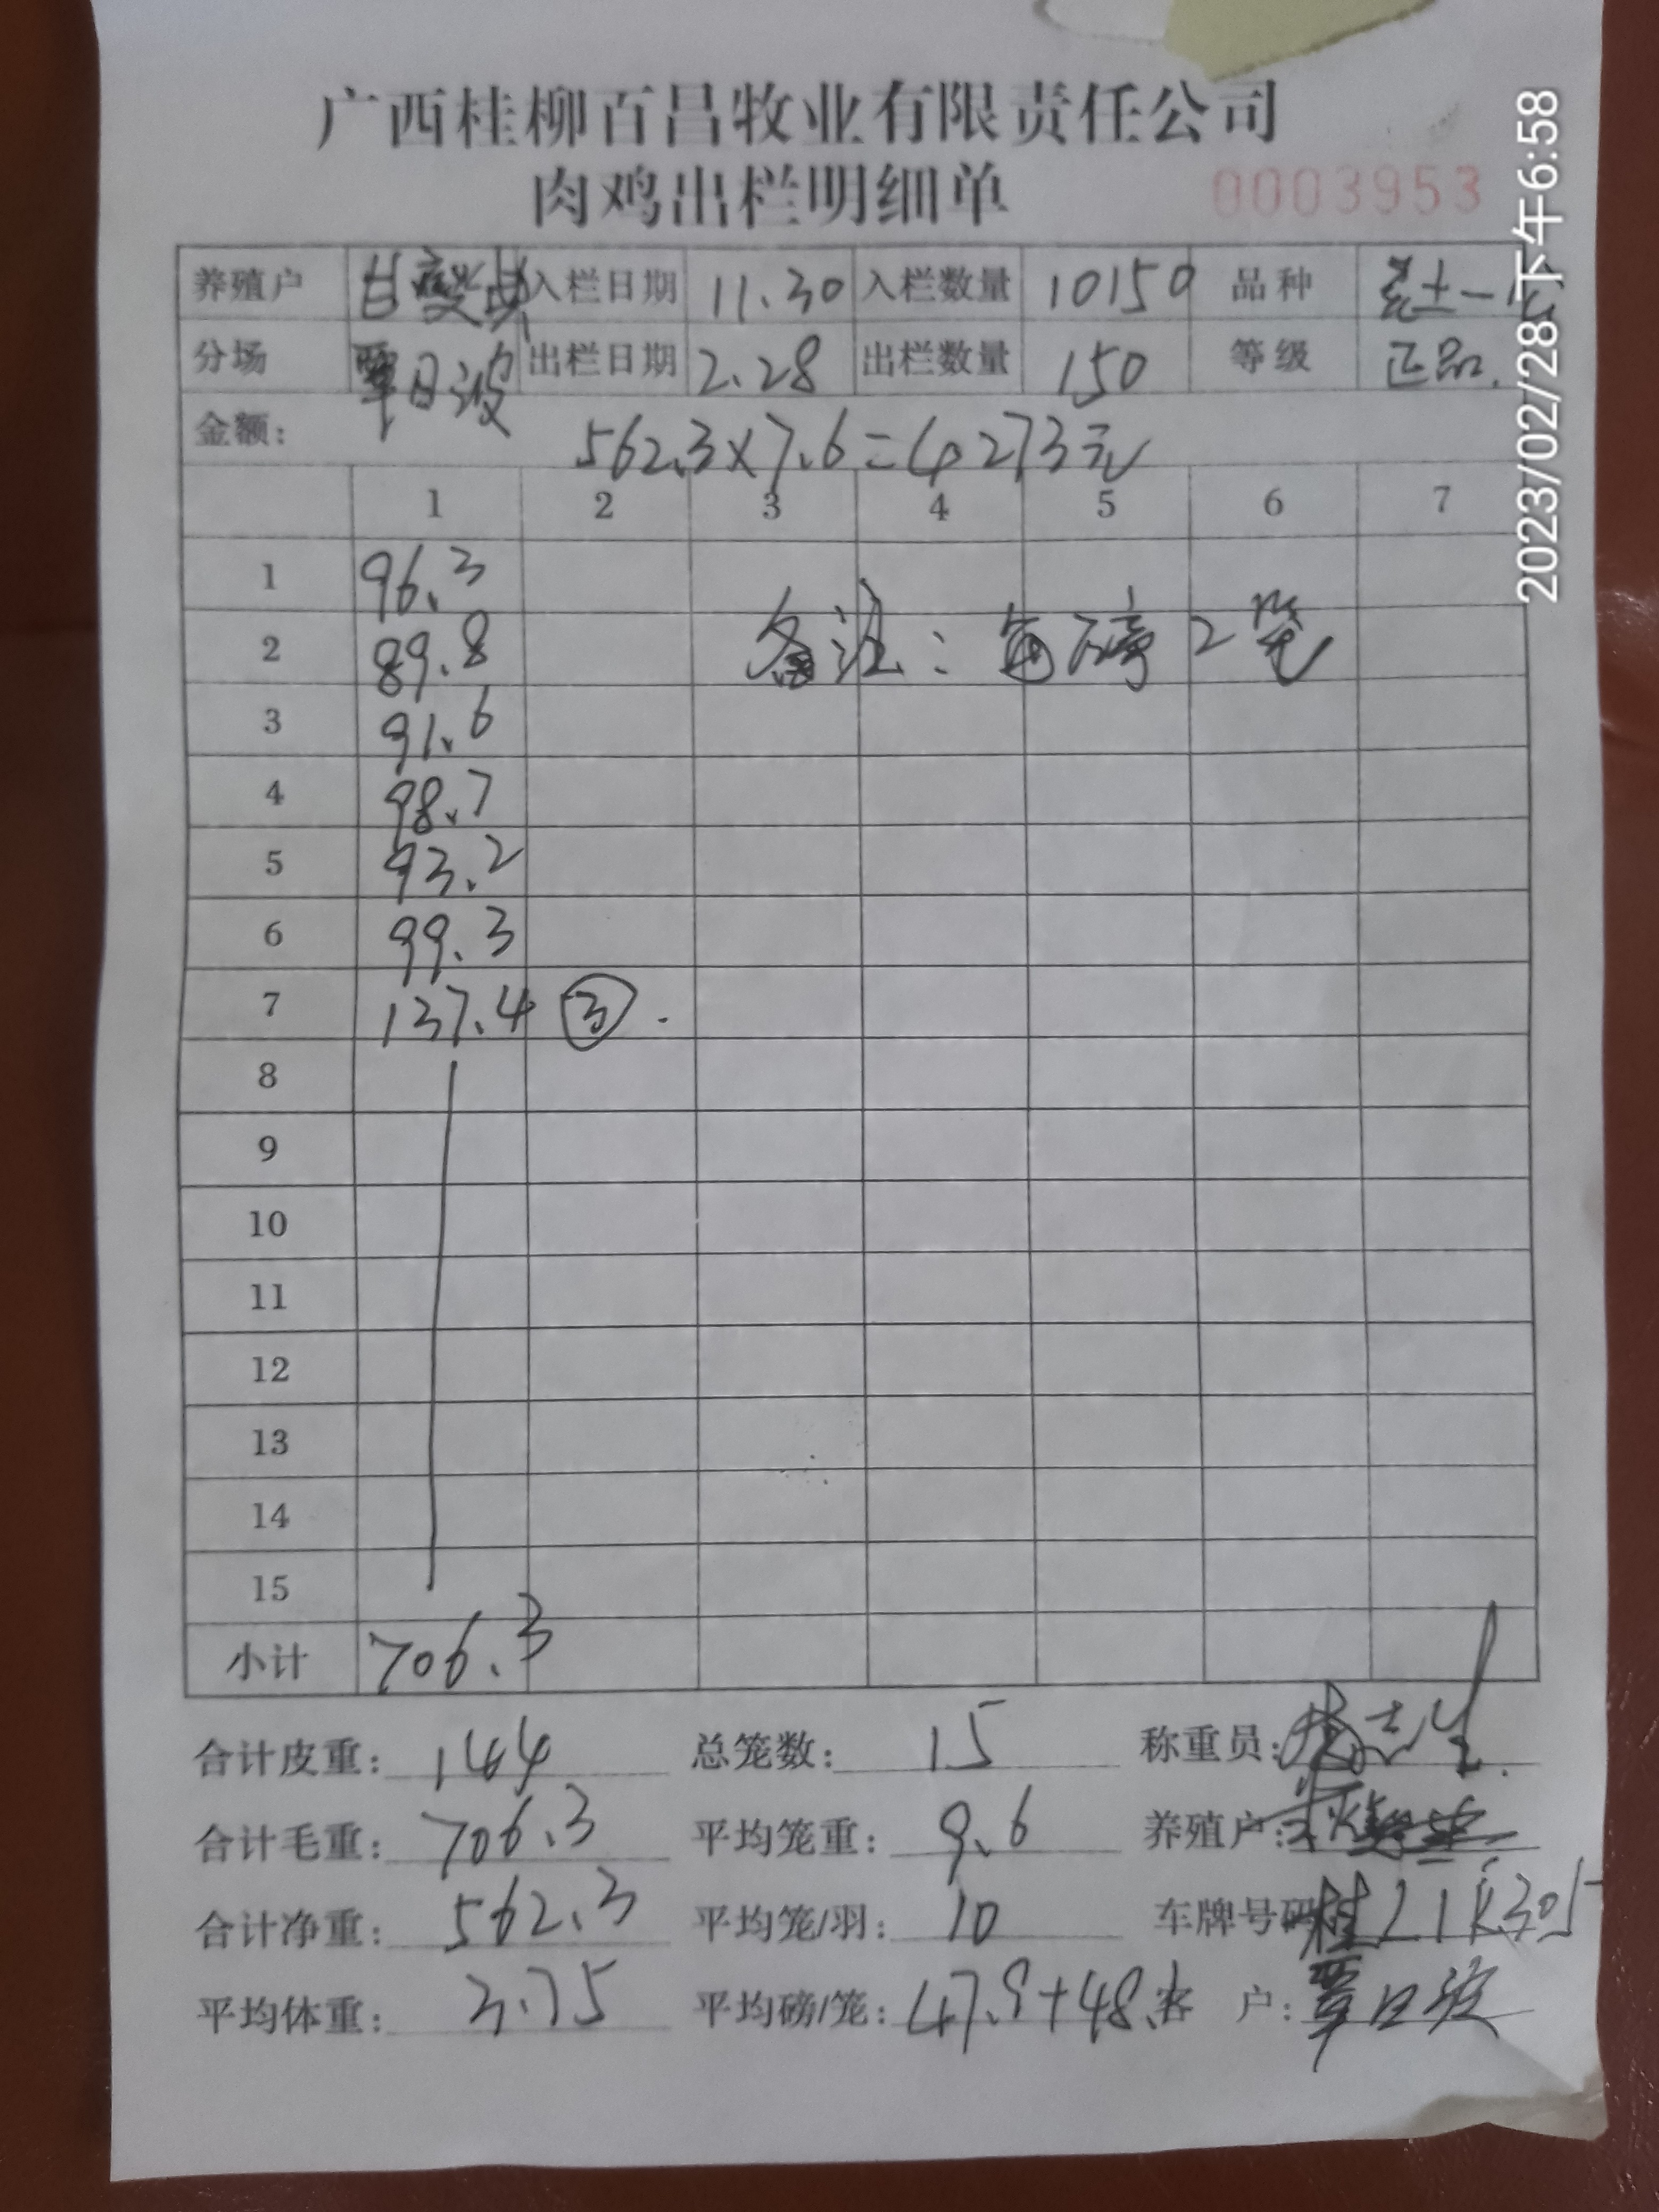 广西桂柳百昌牧业有限责任公司
肉鸡出栏明细单 0003953
养殖户 入栏日期 11.30 入栏数量 10150 品种
分场 覃日波 出栏日期 2.28 出栏数量 150 等级 正品.
金额: 562.3×7.6=4273元
1 2 3 4 5 6 7
1 96.3
2 89.8 备注: 每磅2笼
3 91.6
4 98.7
5 93.2
6 99.3
7 137.4 ③.
8
9
10
11
12
13
14
15
小计 706.3
合计皮重: 144 总笼数: 15 称重员:
合计毛重: 706.3 平均笼重: 9.6 养殖户:
合计净重: 562.3 平均笼/羽: 10 车牌号码
平均体重: 3.75 平均磅/笼: 47.9+48. 客 户: 覃日波
2023/02/28 下午6:58